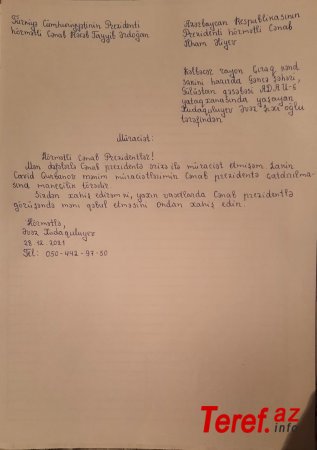 Türkiyə Cümhuriyyətinin Prezidenti
hörmətli Cənab Rəcəb Tayyib Ərdoğan
Azərbaycan Respublikasının
Prezidenti hörmətli Cənab
İlham Əliyev
Kəlbəcər rayon Çıraq kənd
sakini hazırda Gəncə şəhəri,
Gülüstan qəsəbəsi ADAU-6
yataqxanasında yaşayan
Xudaquluyev Əvəz Şıxı oğlu
tərəfindən
Müraciət:
Hörmətli cənab Prezidentlər!
Mən dəfələrlə Cənab prezidentə ərizə ilə müraciət etmişəm. Lakin
Cavid Qurbanov mənim müraciətlərimin Cənab prezidentə çatdırılma-
sına maneçilik törədir.
Sizdən xahiş edirəm ki, yaxın vaxtlarda Cənab prezidentlə
görüşəndə məni qəbul etməsini Ondan xahiş edin.
Hörmətlə,
Əvəz Xudaquluyev
28.12.2021
Tel: 050-442-97-50
Teref.az
info